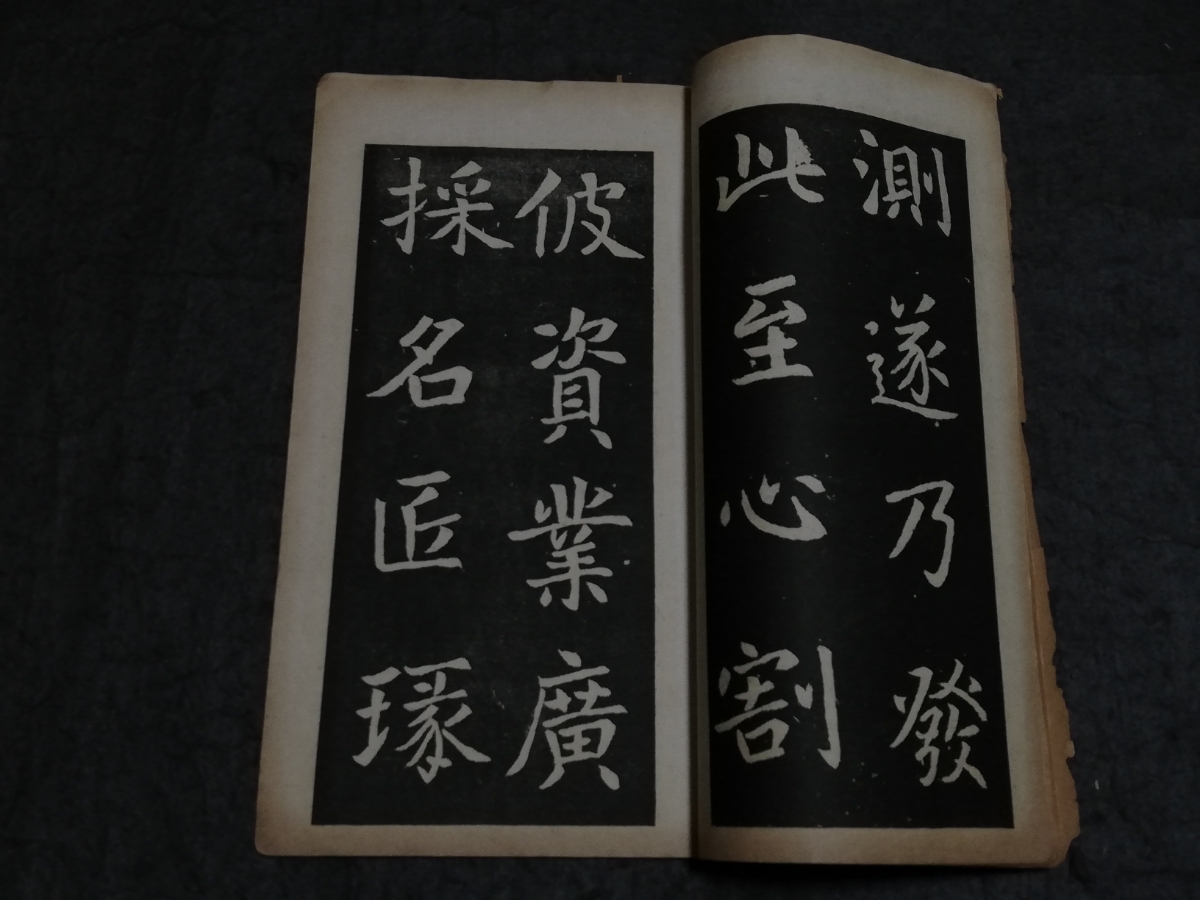 測遂乃發
此至心割
彼資業廣
採名匠琢